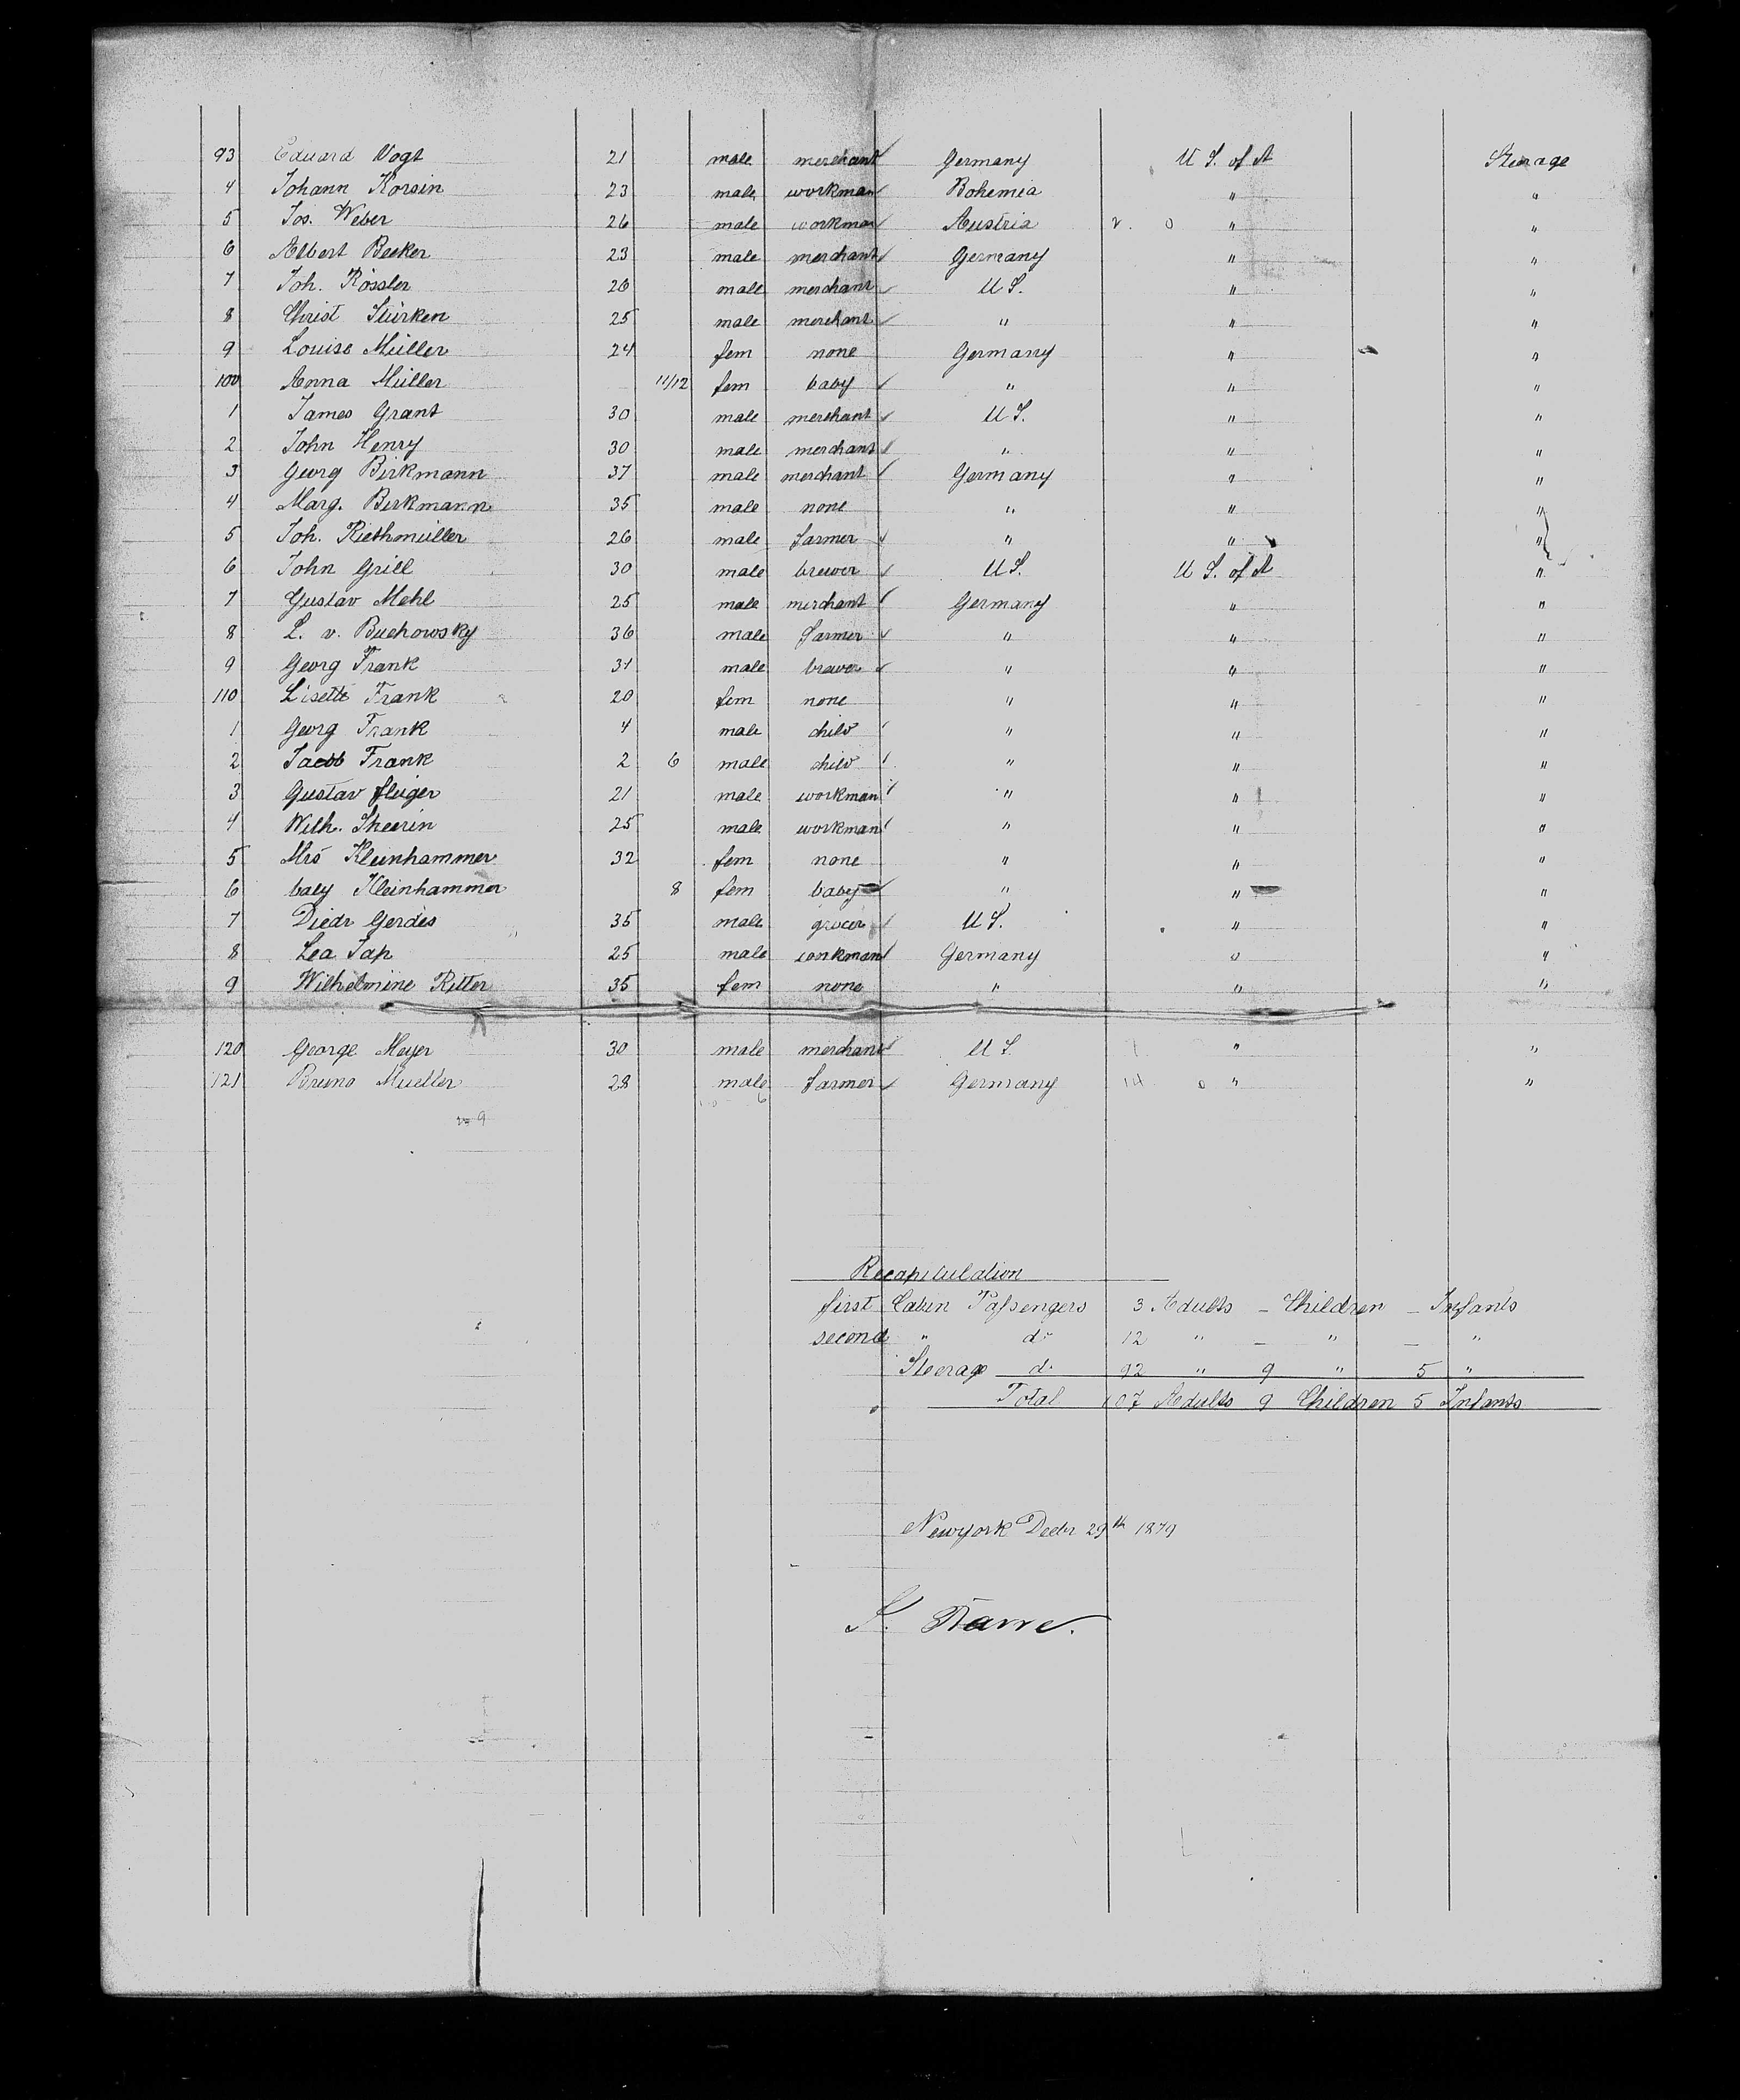 93 Eduard Vogt 21 male merchant Germany U S. of A Steerage
4 Johann Korsin 23 male workman Bohemia " "
5 Jos. Weber 26 male workman Austria " "
6 Albert Becker 23 male merchant Germany " "
7 Joh. Rössler 26 male merchant U S. " "
8 Christ Stürken 25 male merchant " " "
9 Louise Müller 24 fem none Germany " "
100 Anna Müller 11/12 fem baby " " "
1 James Grant 30 male merchant U S. " "
2 John Henry 30 male merchant " " "
3 Georg Birkmann 37 male merchant Germany " "
4 Marg. Birkmann 35 male none " " "
5 Joh. Riethmüller 26 male farmer " " "
6 John Grill 30 male brewer U S. U S. of A "
7 Gustav Mehl 25 male merchant Germany " "
8 L. v. Buchowsky 36 male farmer " " "
9 Georg Frank 31 male brewer " " "
110 Lisette Frank 20 fem none " " "
1 Georg Frank 4 male child " " "
2 Jacob Frank 2 6 male child " " "
3 Gustav fluger 21 male workman " " "
4 Wilh. 25 male workman " " "
5 Mrs Kleinhammer 32 fem none " " "
6 baby Kleinhammer 8 fem baby " " "
7 Diedr Gerdes 35 male grocer U S. " "
8 Lea Jap 25 male workman Germany " "
9 Wilhelmine Ritter 35 fem none " " "
120 George Meyer 30 male merchant U S. " "
121 Bruno Mueller 28 male farmer Germany " "
Recapitulation
first Cabin Passengers 3 Adults – Children – Infants
second " do 12 " – " – "
Steerage do 92 " 9 " 5 "
Total 107 Adults 9 Children 5 Infants
Newyork Decbr 29th 1879